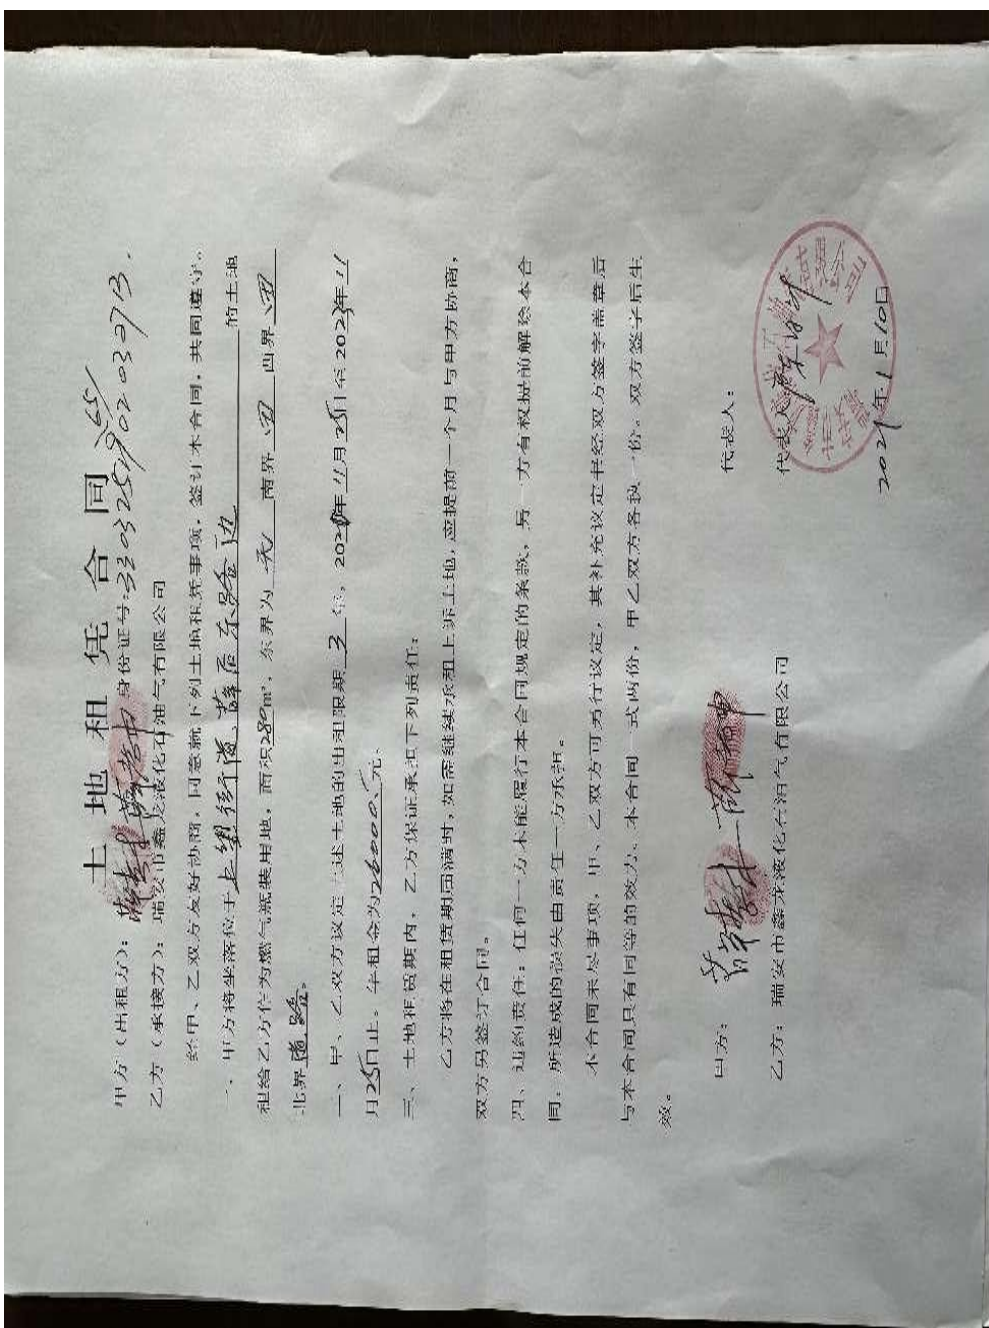 土地租凭合同
甲方（出租方）： 身份证号:330325590203073.
乙方（承接方）：瑞安市鑫龙液化石油气有限公司
经甲、乙双方友好协商，同意就下列土地租凭事项，签订本合同，共同遵守。
一、甲方将坐落位于上望街道 东路边 的土地
租给乙方作为燃气瓶装用地，面积280m²，东界为 南界 田 西界 田
北界道路。
二、甲、乙双方议定上述土地的出租限期3年，年11月25日至2023年11
月25日止。年租金为26000元
三、土地租赁期内，乙方保证承担下列责任：
乙方将在租赁期届满时，如需继续承租上诉土地，应提前一个月与甲方协商，
双方另签订合同。
四、违约责任：任何一方未能履行本合同规定的条款，另一方有权提前解除本合
同，所造成的损失由责任一方承担。
本合同未尽事项，甲、乙双方可另行议定，其补充议定书经双方签字盖章后
与本合同具有同等的效力、本合同一式两份，甲乙双方各执一份。双方签字后生
效。
甲方： 代表人：
乙方：瑞安市鑫龙液化石油气有限公司 代表人
2021年1月10日